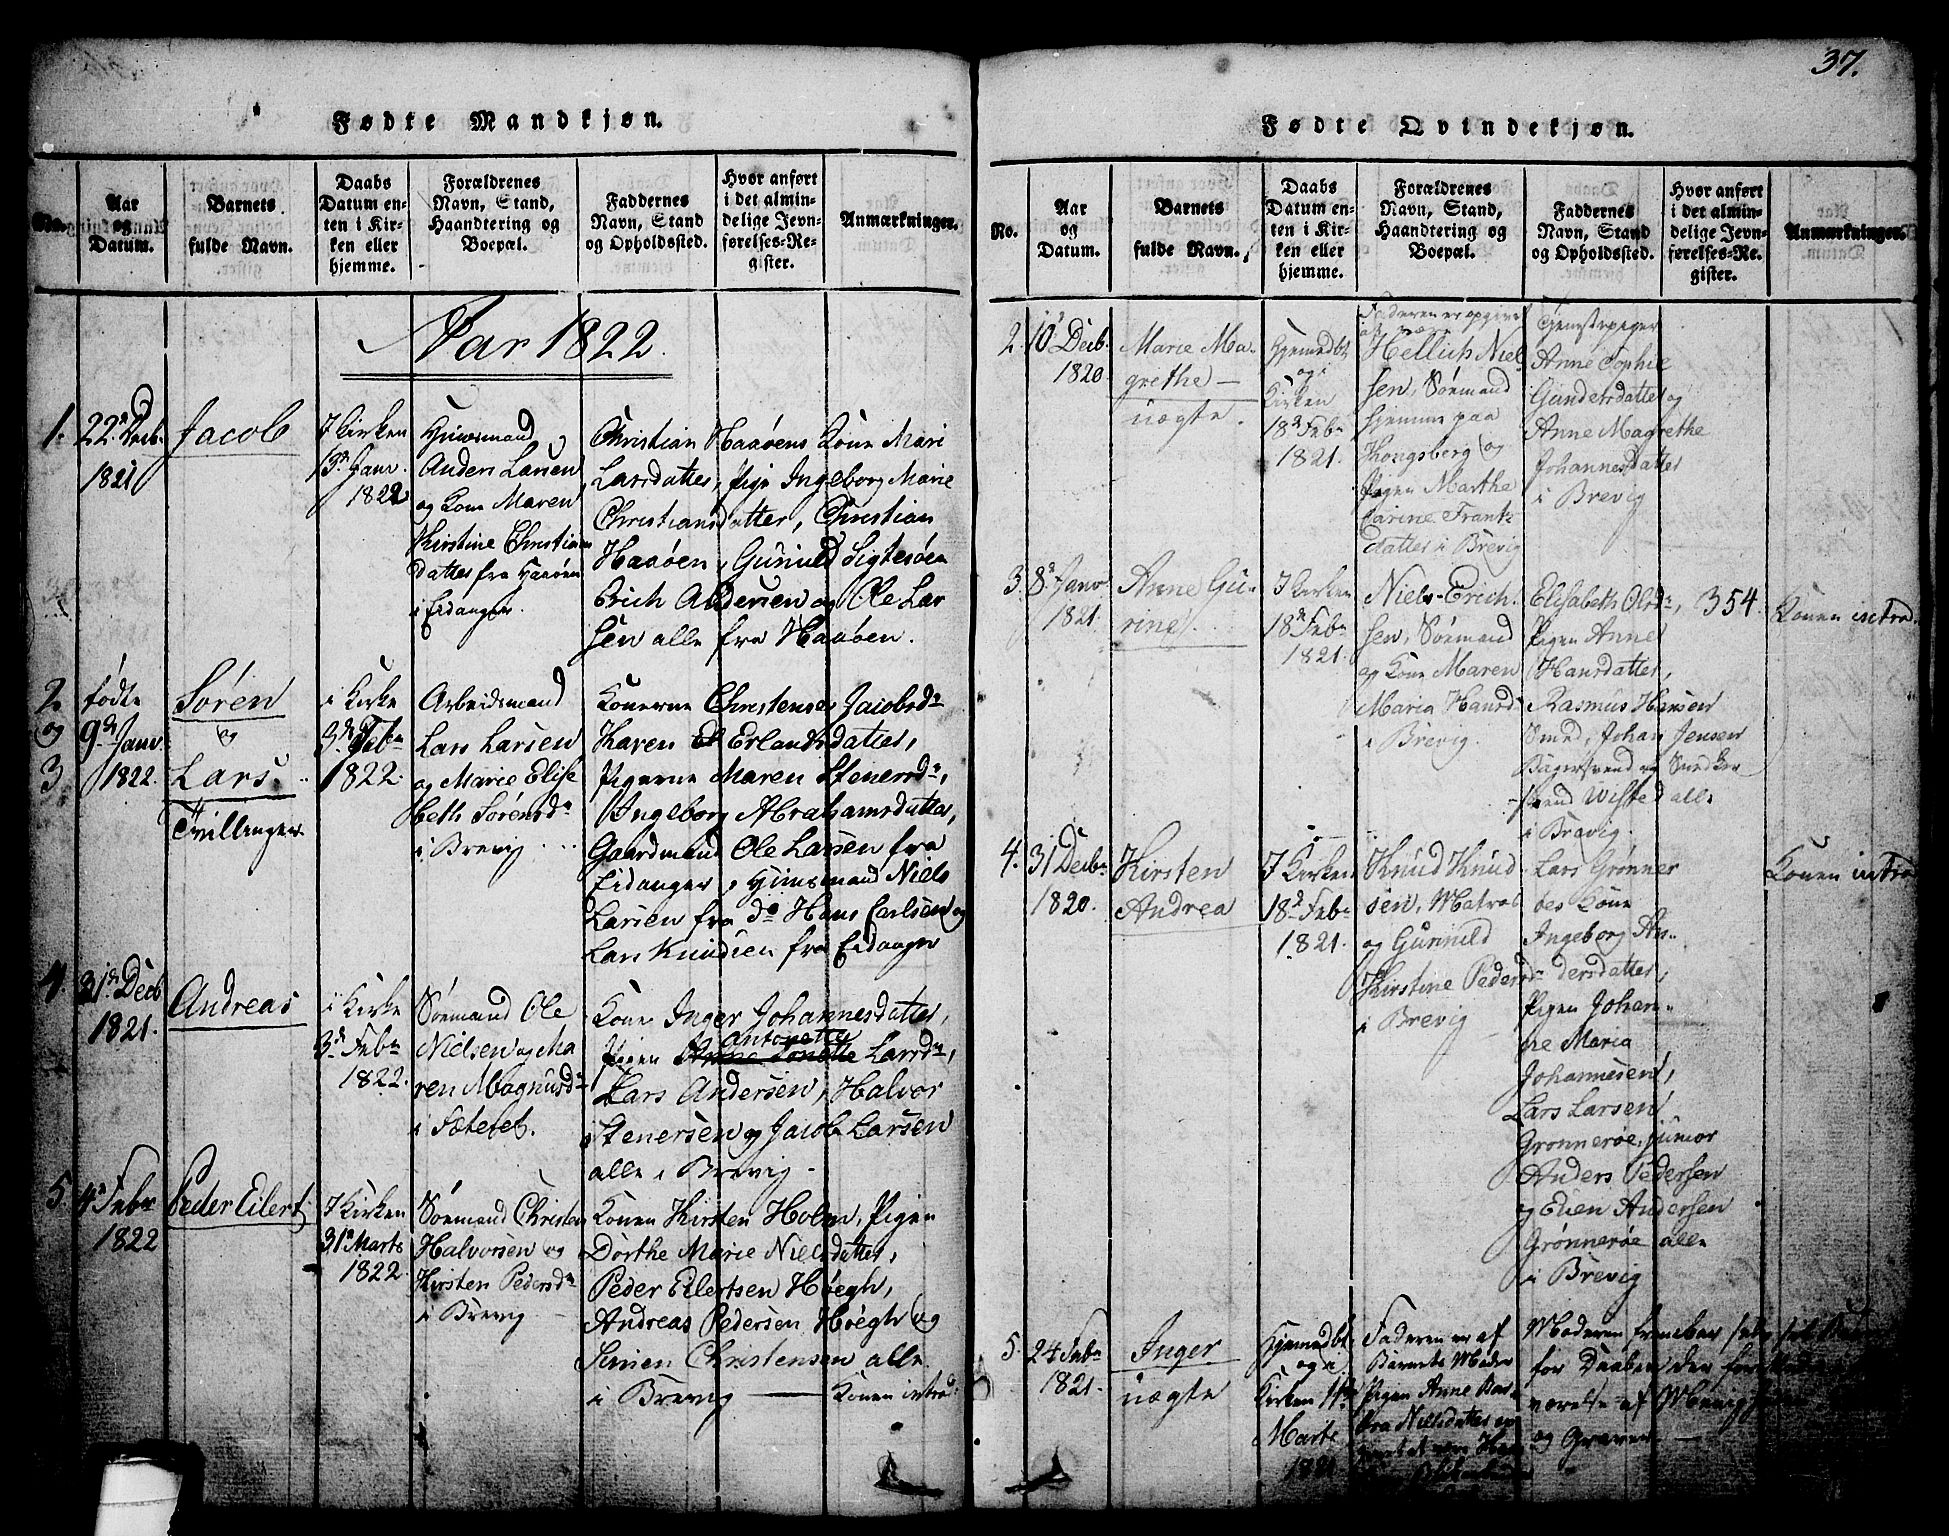 37.
Fødte Mandkjøn.
No.
Aar
og
Datum.
Barnets
fulde Navn.
Daabs
Datum en-
ten i Kir-
ken eller
hjemme.
Forældrenes
Navn, Stand,
Haandtering og
Boepæl.
Faddernes
Navn, Stand
og Opholdssted.
Hvor anført
i det almin-
delige Jevn-
førelses-Re-
gister.
Anmærkninger.
Aar 1822.
1.
22d Decb.
1821
Jacob
I Kirken
13d Janr.
1822
Huusmand
Anders Larsen
og Kone Maren
Kirstine Christians
datter fra Haaøen
i Eidanger.
Christian Haaøens Kone Mari
Larsdatter, Pige Ingeborg Marie
Christiansdatter, Christian
Haaøen, Gunild Sigtesøen
Erich Andersen og Ole Lar
sen alle fra Haaøen.
2
og
3
fødte
9d Janr
1822.
Søren
og
Lars
Tvillinger
i Kirke
3d Febr
1822.
Arbeidsmand
Lars Larsen
og Marie Elise
beth Sørensdr
i Brevig
Konerne Christense Jacobsdr
Karen El Erlandsdatter,
Pigerne Maren Stenersdr,
Ingeborg Abrahamsdatter,
Gaardmand Ole Larsen fra
Eidanger, Huusmand Niels
Larsen fra do Hans Carlsen og
Lars Knudsen fra Eidanger
4
31d Decb
1821.
Andreas
i Kirke
3d Febr
1822.
Sømand Ole
Nielsen og Ma
ren Magnusdr
i Sætret.
Kone Inger Johannesdatter,
Antonette
Pigen Anne Tonette Larsdr,
Lars Andersen, Halvor
Stenersen og Jacob Larsen
alle i Brevig
5
4d Febr
1822
Peder Eilert
I Kirken
31d Marts
1822.
Sømand Christen
Halvorsen og
Kirsten Pedersdr
i Brevig
Konen Kirsten Holm, Pigen
Dorthe Marie Nielsdatter,
Peder Eilertsen Høegh,
Andreas Pedersen Høegh og
Simen Christensen alle
i Brevig
Konen introd:
Fødte Qvindekjøn.
No.
Aar
og
Datum.
Barnets
fulde Navn.
Daabs
Datum en-
ten i Kir-
ken eller
hjemme.
Forældrenes
Navn, Stand,
Haandtering og
Boepæl.
Faddernes
Navn, Stand
og Opholdssted.
Hvor anført
i det almin-
delige Jevn-
førelses-Re-
gister.
Anmærkninger.
2.
10d Decb.
1820.
Marie Ma-
grethe
uægte.
Hjemmedbt
og i
Kirken
18d Febr
1821.
Faderen er opgivet
at være
Hellich Niel
sen, Sømand
hjemme paa
Kongsberg og
Pigen Marthe
Carine Frantz
datter i Brevig
Tjenstepiger
Anne Sophie
Gundersdatter og
Anne Magrethe
Johannesdatter
i Brevig
3.
8d Janr
1821.
Anne Gu-
rine
I Kirken
18d Febr
1821.
Niels Erich-
sen, Sømand
og Kone Maren
Maria Hansdr
i Brevig.
Elisabeth Olsdr,
Pigen Anne
Hansdatter,
Rasmus Hansen
Smed, Johan Jensen
Bagersvend og Snedker
svend Wisted alle
i Brevig.
354.
Konen introd.
4.
31 Decbr
1820.
Kirsten
Andrea
I Kirken
18d Febr
1821.
Knud Knud
sen, Matros
og Gunnild
Kirstine Pedersdr
i Brevig
Lars Grønner
øes Kone
Ingeborg An-
dersdatter,
Pigen Johan-
ne Maria
Johannesen,
Lars Larsen
Grønnerøe, junior
Anders Pedersen
og Even Andersen
Grønnerøe alle
i Brevig
Konen introd
5.
24 Febr
1821.
Inger
uægte
Hjemmedbt
og i
Kirken 11te
Marts
1821.
Faderen er af
Barnets Moder
Pigen Anne Bar-
bra Nielsdatter
Moderen frembar selv sit Barn
for Daaben
værelse af
og Graver